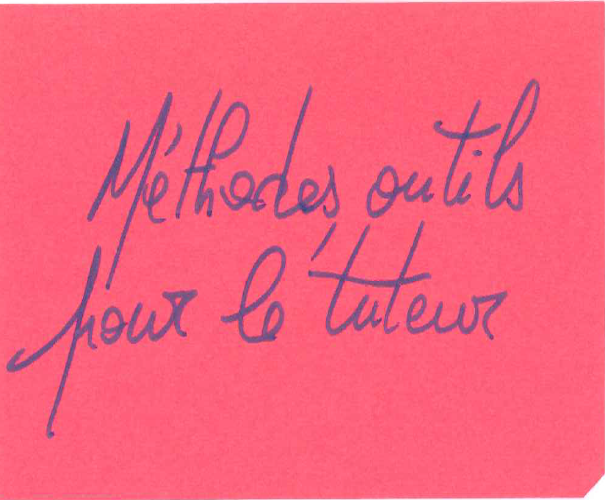 Méthodes outils
pour le tuteur